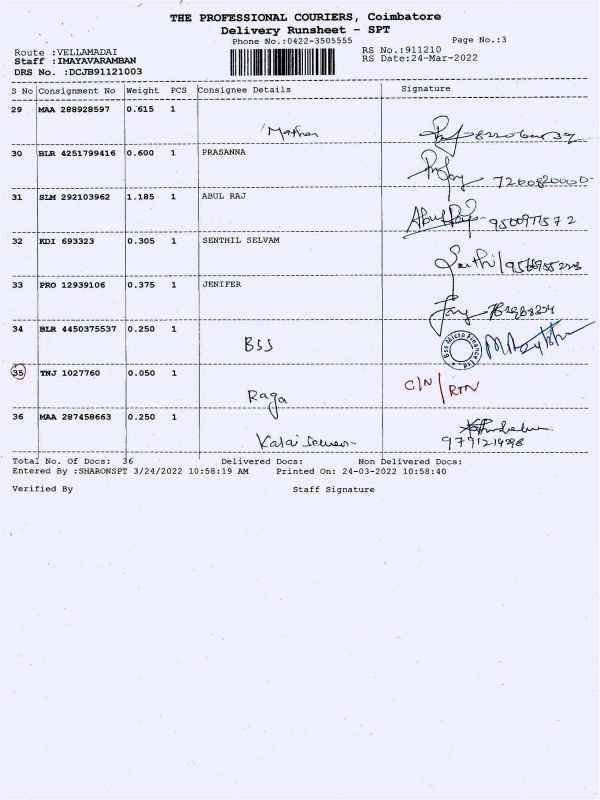 THE PROFESSIONAL COURIERS, Coimbatore
Delivery Runsheet - SPT
Phone No.:0422-3505555
Page No.:3
Route :VELLAMADAI
RS No.:911210
Staff :IMAYAVARAMBAN
RS Date:24-Mar-2022
DRS No. :DCJB91121003
S No Consignment No Weight PCS Consignee Details Signature
29 MAA 288928597 0.615 1
30 BLR 4251799416 0.600 1 PRASANNA
7200820000
31 SLM 292103962 1.185 1 ABUL RAJ
Abul Raj
9500971572
32 KDI 693323 0.305 1 SENTHIL SELVAM
33 PRO 12939106 0.375 1 JENIFER
34 BLR 4450375537 0.250 1
BSS
Bss Micro Finance Ltd
35 TNJ 1027760 0.050 1
Raga
C/N / RTN
36 MAA 287458663 0.250 1
Kalai
9791214298
Total No. Of Docs: 36 Delivered Docs: Non Delivered Docs:
Entered By :SHARONSPT 3/24/2022 10:58:19 AM Printed On: 24-03-2022 10:58:40
Verified By Staff Signature